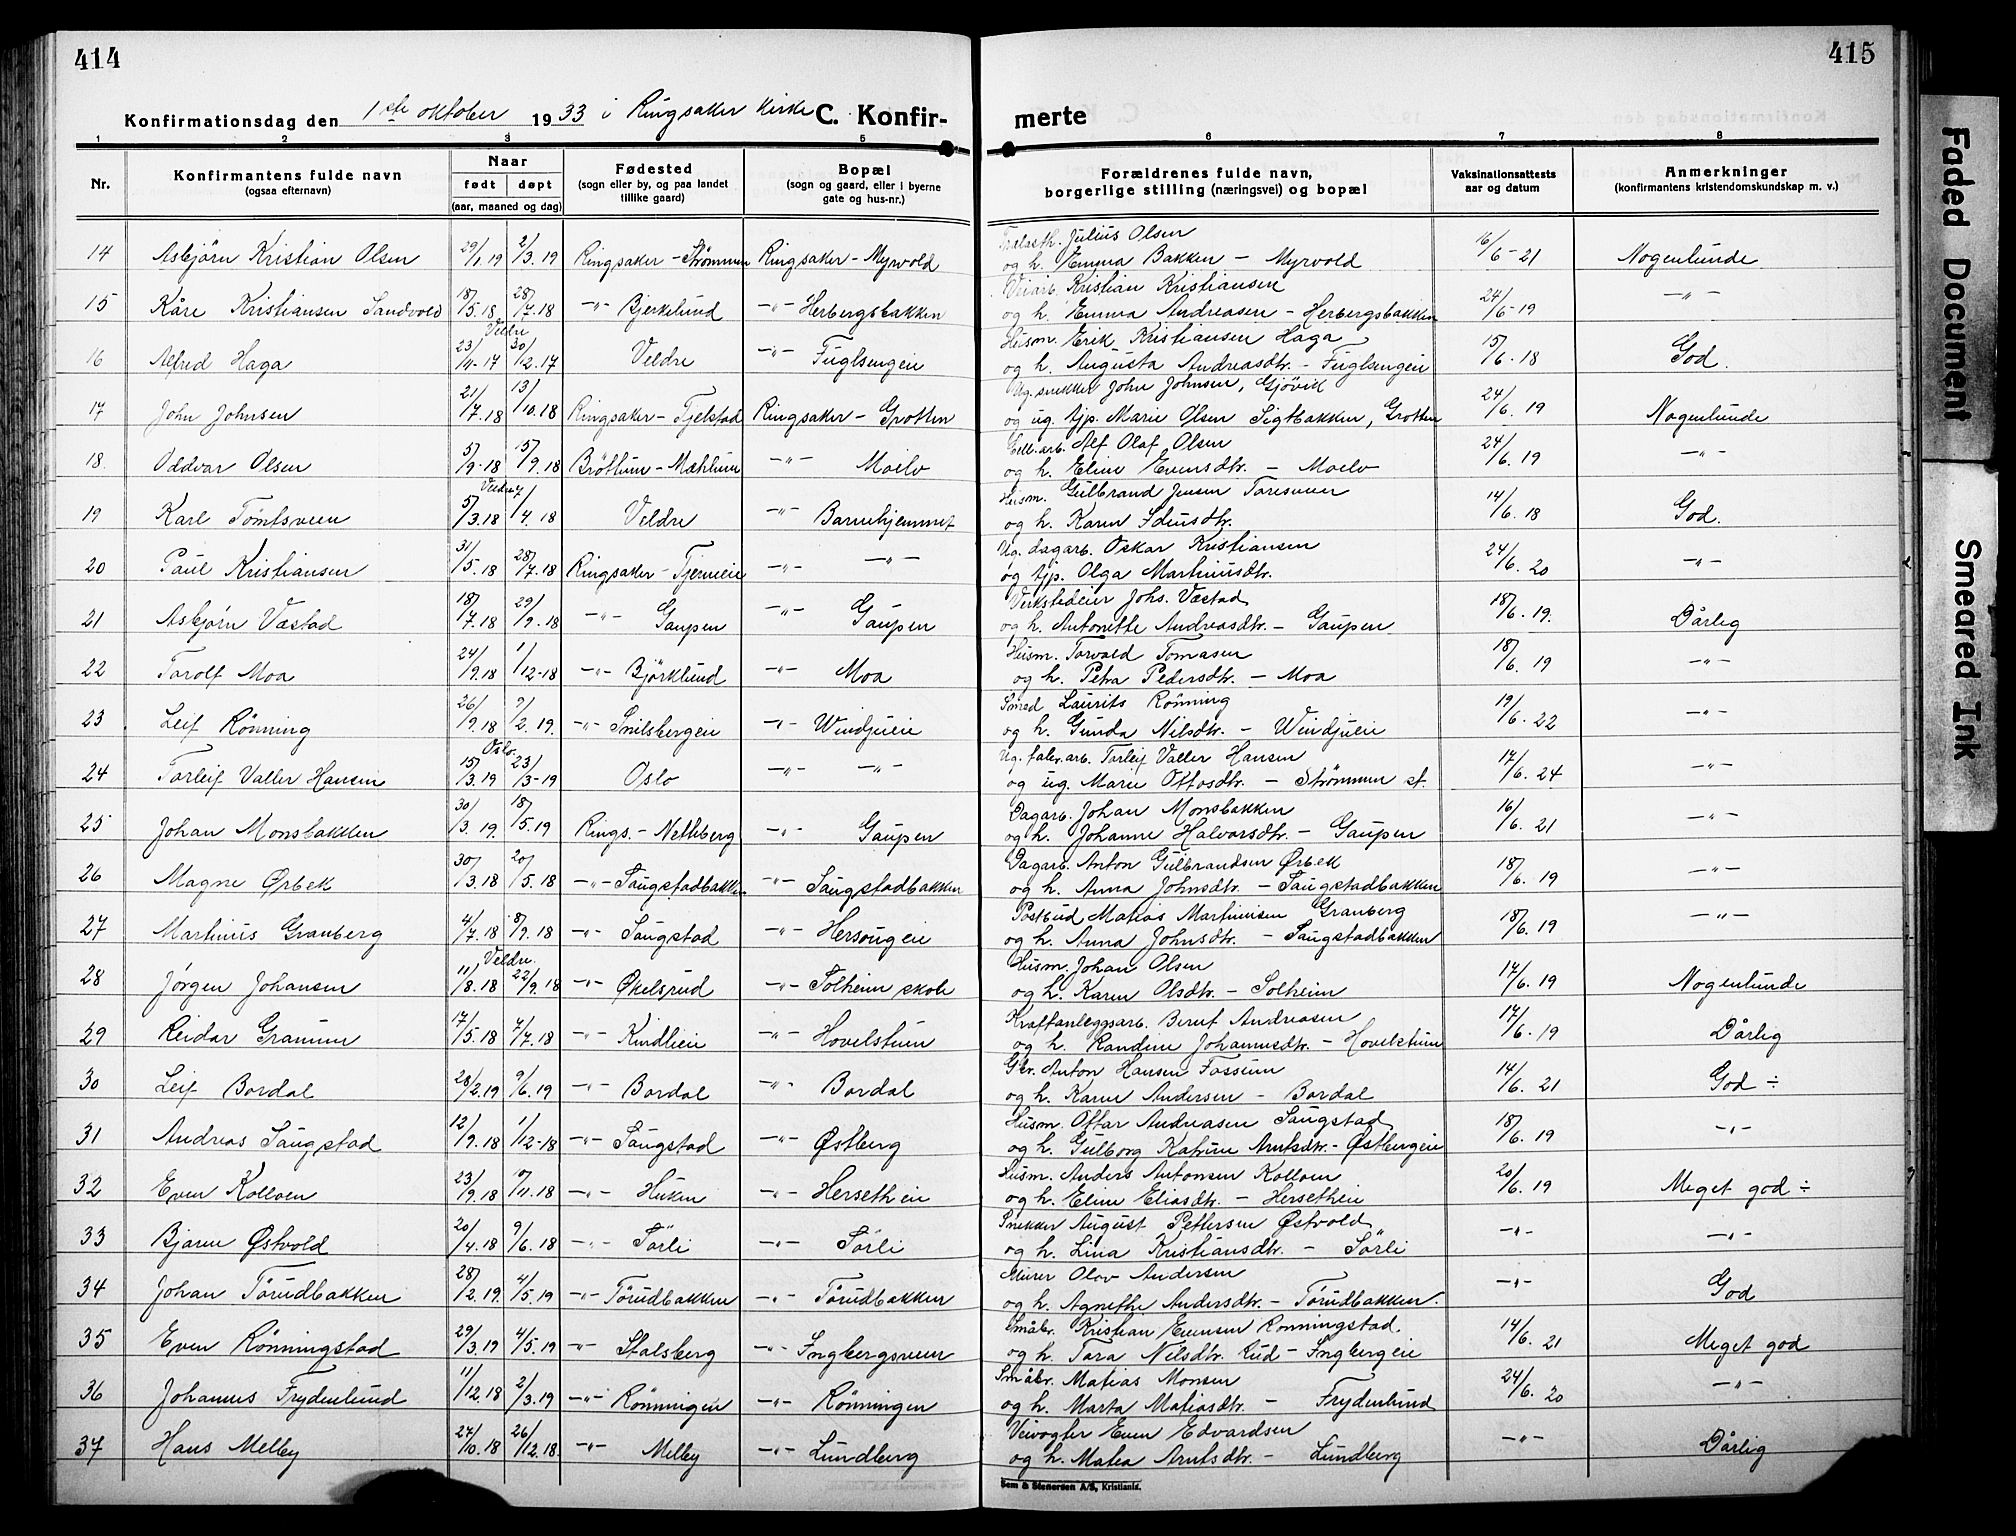 414
415
Konfirmationsdag den 1ste oktober 1933 i Ringsaker kirke C. Konfir-
merte
1 2 3 4 5 6 7 8
Nr.
Konfirmantens fulde navn
(ogsaa efternavn)
Naar
født døpt
(aar, maaned og dag)
Fødested
(sogn eller by, og paa landet
tillike gaard)
Bopæl
(sogn og gaard, eller i byerne
gate og hus-nr.)
Forældrenes fulde navn,
borgerlige stilling (næringsvei) og bopæl
Vaksinationsattests
aar og datum
Anmerkninger
(konfirmantens kristendomskundskap m. v.)
Julius Olsen
14 Asbjörn Kristian Olsen 29/1.19 2/3.19 Ringsaker - Strømmen Ringsaker - Myrvold og h. Emma Bakken - Myrvold 16/6-21 Nogenlunde
Veiarb. Kristian Kristiansen
15 Kåre Kristiansen Sandvold 18/5.18 28/7.18 -"- Bjerkelund -"- Herbergsbakken og h. Emma Andreasen - Herbergsbakken 24/6-19 -"-
Veldre
Husm. Erik Kristiansen Haga
16 Alfred Haga 23/11-17 30/12.17 Veldre -"- Fuglsengeie og h. Augusta Andreasdtr. - Fuglsengeie 15/6.18 God.
Ug. snekker John Johnsen, Gjövik
17 John Johnsen 21/7.18 13/10.18 Ringsaker - Tjelstad Ringsaker - Grotten og ug. tjp. Marie Olsen Sigtbakken, Grotten 24/6.19 Nogenlunde
Cell. arb. Alf Olaf Olsen
18. Oddvar Olsen 5/9-18 15/9.18 Brøttum - Mæhlum -"- Moelv og h. Eline Evensdtr. - Moelv 24/6.19 -"-
Veldre
Husm. Gulbrand Jensen
19 Karl Tømtsveen 5/3.18 7/4.18 Veldre -"- Barnehjemmet og h. Karen 14/6.18 God.
Ug. dagarb. Oskar Kristiansen
20 Paul Kristiansen 31/5.18 28/7.18 Ringsaker - Tjerneie -"- -"- og tjp. Olga Martinusdtr. 24/6.20 -"-
Verkstedeier Johs. Væstad
21 Asbjørn Væstad 18/7.18 29/9-18 -"- Gaupen -"- Gaupen og h. Antonette Andreasdtr. - Gaupen 18/6.19. Dårlig
Husm. Torvald Tomasen
22 Torolf Moa 24/9.18 1/12-18 -"- Björklund -"- Moa og h. Petra Pedersdtr. - Moa 18/6.19 -"-
Smed Laurits Rönning
23 Leif Rönning 26/9.18 9/2.19. -"- Smilsbergeie -"- Windjueie og h. Gunda Nilsdtr. - Windjueie 19/6.22 -"-
Oslo.
Ug. fabr. arb. Torleif Valler Hansen
24 Torleif Valler Hansen 15/3.19 23/3-19 Oslo -"- -"- og ug. Marie Ottosdtr. - Strømmen st. 17/6.24 -"-
Dagarb. Johan Monsbakken
25 Johan Monsbakken 30/3.19. 18/5.19 Rings. - Nethberg -"- Gaupen og h. Johanne Halvorsdtr. - Gaupen 16/6.21 -"-
Dagarb. Anton Gulbrandsen Ørbek
26 Magne Ørbek 30/3.18 20/5.18 -"- Saugstadbakken -"- Saugstadbakken og h. Anna Johnsdtr. - Saugstadbakken 18/6.19 -"-
Postbud Matias Martinisen Granberg
27 Martinus Granberg 4/7.18 8/9.18 -"- Saugstad -"- Hersougeie og h. Anna Johnsdtr. - Saugstadbakken 18/6.19 -"-
Veldre.
Husm. Johan Olsen
28 Jørgen Johansen 11/8.18 22/9.18 -"- Økelsrud -"- Solheim skole og h. Karen Olsdtr. - Solheim 17/6.19 Nogenlunde
Kraftanleggsarb. Bernt Andreasen
29 Reidar Granum 17/5.18 7/7.18 -"- Kindlieie -"- Hovelstuen og h. Randine Johannesdtr. - Hovelstuen 17/6.19 Dårlig
Gbr. Anton Hansen Fossum
30 Leif Bordal 28/2.19 9/6.19 -"- Bordal -"- Bordal og h. Karen Andersen - Bordal 14/6.21 God ÷
Husm. Ottar Andreasen Saugstad
31 Andreas Saugstad 12/9.18 1/12-18 -"- Saugstad -"- Østberg og h. Gulborg Katrine Arntsdtr. - Østbergeie 18/6.19 -"-
Husm. Anders Antonsen Kolloen
32 Even Kolloen 23/9.18 /11.18 -"- Huken -"- Hersetheie og h. Eline Eliasdtr. - Hersetheie 20/6.19 Meget god ÷
Snekker August Pettersen Østvold
33 Bjarne Østvold 20/4.18 9/6.18 -"- Sörli -"- Sörli og h. Lina Kristiansdtr. - Sörli -"- -"-
Murer Olav Andersen
34 Johan Törudbakken 28/2.19. 4/5.19 -"- Törudbakken -"- Törudbakken og h. Agnethe Andersdtr. - Törudbakken. -"- God
Småbr. Kristian Evensen Rønningstad.
35 Even Rönningstad 29/3.19 4/5.19 -"- Stalsberg -"- Ingbergsveen og h. Tora Nilsdtr. Rud - Ingbergeie 14/6.21 Meget god
Småbr. Matias Monsen
36 Johannes Frydenlund 11/12.18 2/3.19 -"- Rönningen -"- Rönningen og h. Marta Matiasdtr. - Frydenlund 24/6.20 -"-
Veivogter Even Edvardsen
37 Hans Melby 27/10.18 26/12.18. -"- Melby -"- Lundberg og h. Matea Arntsdtr. - Lundberg -"- Dårlig
Sem & Stenersen A/S, Kristiania.
Faded Document
Smeared Ink